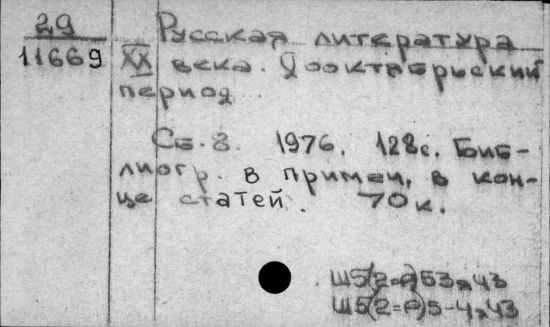 29
11669
Русская литература
XX века. Дооктябрьский
период
Сб. 8. 1976. 128с. Биб-
лиогр. в примеч. в кон-
це статей. 70 к.
Ш5(2=Р)53я43
Ш5(2=Р)5-4я43